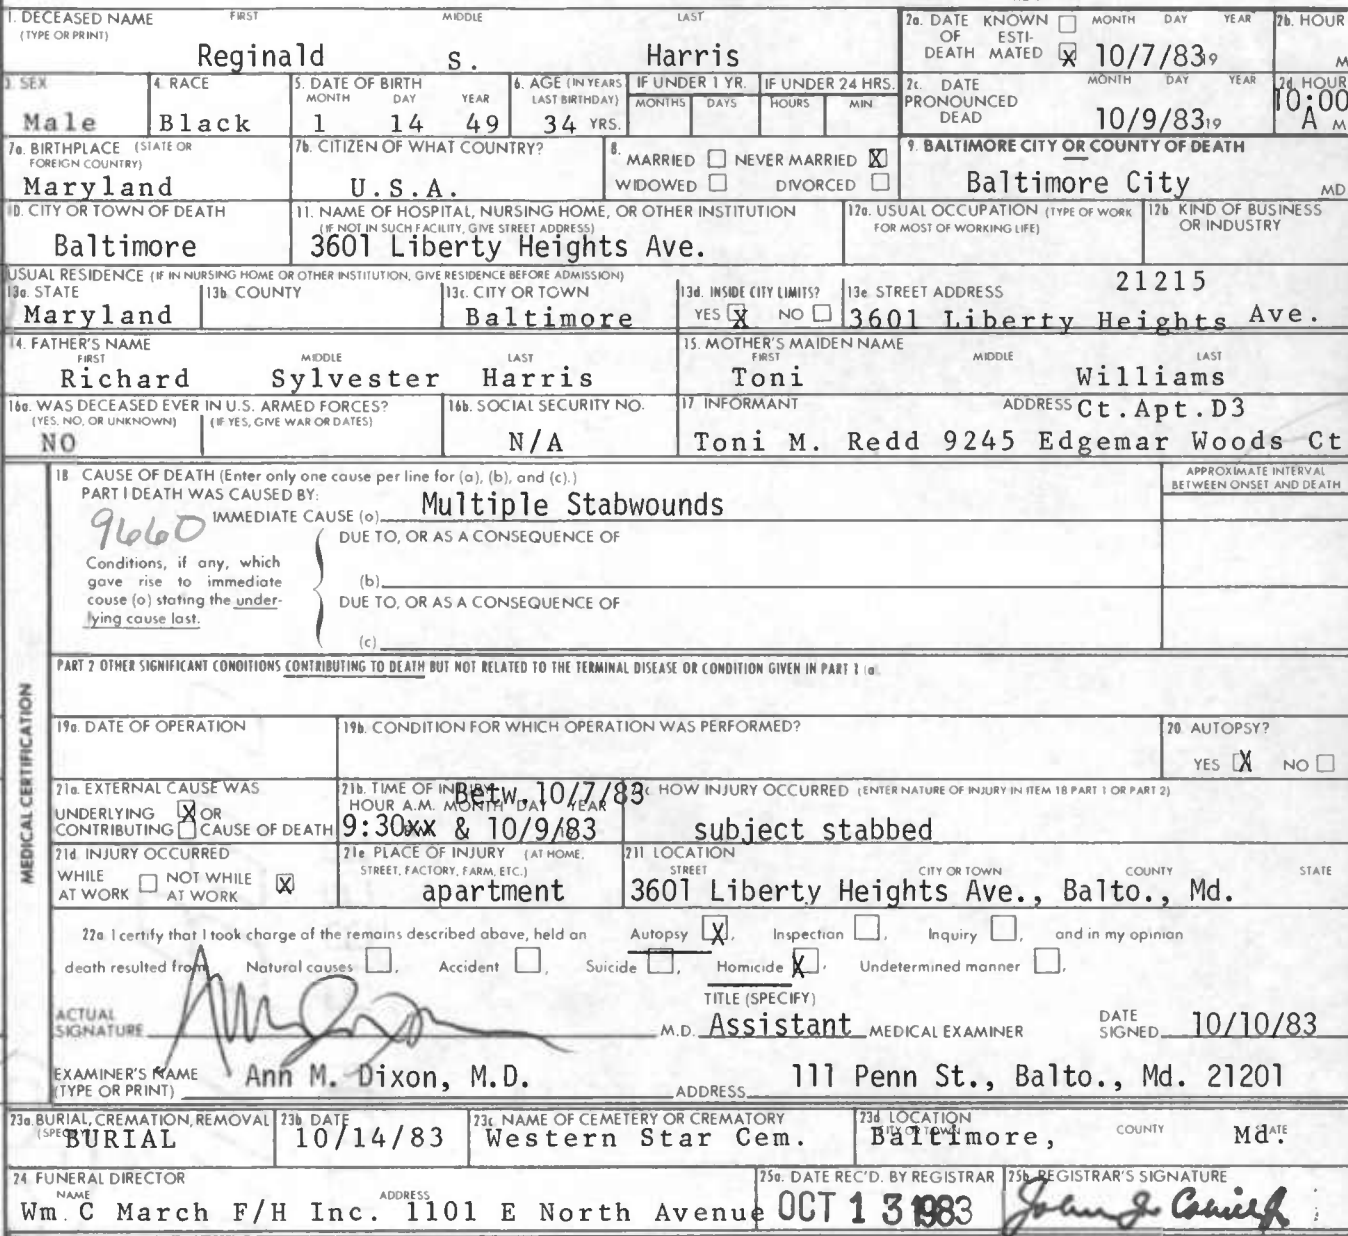 1. DECEASED NAME FIRST MIDDLE LAST
(TYPE OR PRINT)
Reginald S. Harris
2a. DATE KNOWN ☐ MONTH DAY YEAR
OF ESTI-
DEATH MATED ☒ 10/7/83 19
2b. HOUR
M
3. SEX
Male
4. RACE
Black
5. DATE OF BIRTH
MONTH DAY YEAR
1 14 49
6. AGE (IN YEARS
LAST BIRTHDAY)
34 YRS.
IF UNDER 1 YR.
MONTHS DAYS
IF UNDER 24 HRS.
HOURS MIN
2c. DATE MONTH DAY YEAR
PRONOUNCED
DEAD 10/9/83 19
2d. HOUR
10:00
A M
7a. BIRTHPLACE (STATE OR
FOREIGN COUNTRY)
Maryland
7b. CITIZEN OF WHAT COUNTRY?
U.S.A.
8.
MARRIED ☐ NEVER MARRIED ☒
WIDOWED ☐ DIVORCED ☐
9. BALTIMORE CITY OR COUNTY OF DEATH
Baltimore City MD
10. CITY OR TOWN OF DEATH
Baltimore
11. NAME OF HOSPITAL, NURSING HOME, OR OTHER INSTITUTION
(IF NOT IN SUCH FACILITY, GIVE STREET ADDRESS)
3601 Liberty Heights Ave.
12a. USUAL OCCUPATION (TYPE OF WORK
FOR MOST OF WORKING LIFE)
12b. KIND OF BUSINESS
OR INDUSTRY
USUAL RESIDENCE (IF IN NURSING HOME OR OTHER INSTITUTION, GIVE RESIDENCE BEFORE ADMISSION)
13a. STATE
Maryland
13b. COUNTY
13c. CITY OR TOWN
Baltimore
13d. INSIDE CITY LIMITS?
YES ☒ NO ☐
13e. STREET ADDRESS 21215
3601 Liberty Heights Ave.
14. FATHER'S NAME
FIRST MIDDLE LAST
Richard Sylvester Harris
15. MOTHER'S MAIDEN NAME
FIRST MIDDLE LAST
Toni Williams
16a. WAS DECEASED EVER IN U.S. ARMED FORCES?
(YES, NO, OR UNKNOWN) (IF YES, GIVE WAR OR DATES)
NO
16b. SOCIAL SECURITY NO.
N/A
17 INFORMANT ADDRESS Ct.Apt.D3
Toni M. Redd 9245 Edgemar Woods Ct
MEDICAL CERTIFICATION
18 CAUSE OF DEATH (Enter only one cause per line for (a), (b), and (c).)
PART I DEATH WAS CAUSED BY:
IMMEDIATE CAUSE (a) Multiple Stabwounds
APPROXIMATE INTERVAL
BETWEEN ONSET AND DEATH
9660
DUE TO, OR AS A CONSEQUENCE OF
Conditions, if any, which
gave rise to immediate
cause (a) stating the under-
lying cause last.
(b)
DUE TO, OR AS A CONSEQUENCE OF
(c)
PART 2 OTHER SIGNIFICANT CONDITIONS CONTRIBUTING TO DEATH BUT NOT RELATED TO THE TERMINAL DISEASE OR CONDITION GIVEN IN PART 1 (a
19a. DATE OF OPERATION
19b. CONDITION FOR WHICH OPERATION WAS PERFORMED?
20. AUTOPSY?
YES ☒ NO ☐
21a. EXTERNAL CAUSE WAS
UNDERLYING ☒ OR
CONTRIBUTING ☐ CAUSE OF DEATH
21b. TIME OF INJURY Betw. 10/7/83
HOUR A.M. MONTH DAY YEAR
9:30xx & 10/9/83
21c. HOW INJURY OCCURRED (ENTER NATURE OF INJURY IN ITEM 18 PART 1 OR PART 2)
subject stabbed
21d. INJURY OCCURRED
WHILE NOT WHILE
AT WORK ☐ AT WORK ☒
21e. PLACE OF INJURY (AT HOME,
STREET, FACTORY, FARM, ETC.)
apartment
21f. LOCATION
STREET CITY OR TOWN COUNTY STATE
3601 Liberty Heights Ave., Balto., Md.
22a. I certify that I took charge of the remains described above, held an Autopsy ☒, Inspection ☐, Inquiry ☐, and in my opinion
death resulted from Natural causes ☐, Accident ☐, Suicide ☐, Homicide ☒, Undetermined manner ☐,
TITLE (SPECIFY)
ACTUAL
SIGNATURE M.D. Assistant MEDICAL EXAMINER DATE SIGNED 10/10/83
EXAMINER'S NAME
(TYPE OR PRINT) Ann M. Dixon, M.D. ADDRESS 111 Penn St., Balto., Md. 21201
23a. BURIAL, CREMATION, REMOVAL
BURIAL
23b. DATE
10/14/83
23c. NAME OF CEMETERY OR CREMATORY
Western Star Cem.
23d. LOCATION
CITY OR TOWN COUNTY STATE
Baltimore, Md.
24 FUNERAL DIRECTOR
NAME ADDRESS
Wm. C March F/H Inc. 1101 E North Avenue
25a. DATE REC'D. BY REGISTRAR
OCT 13 1983
25b. REGISTRAR'S SIGNATURE